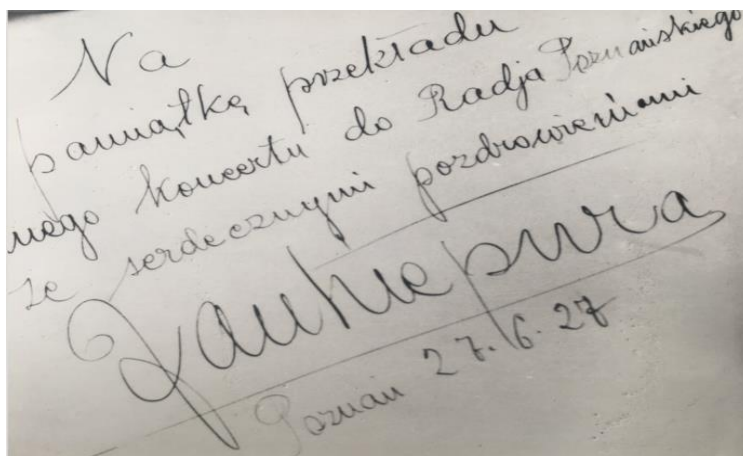 Na
pamiątkę przekładu
mego koncertu do Radja Poznańskiego
ze serdecznymi pozdrowieniami
Jan Kiepura
Poznań 27.6.27